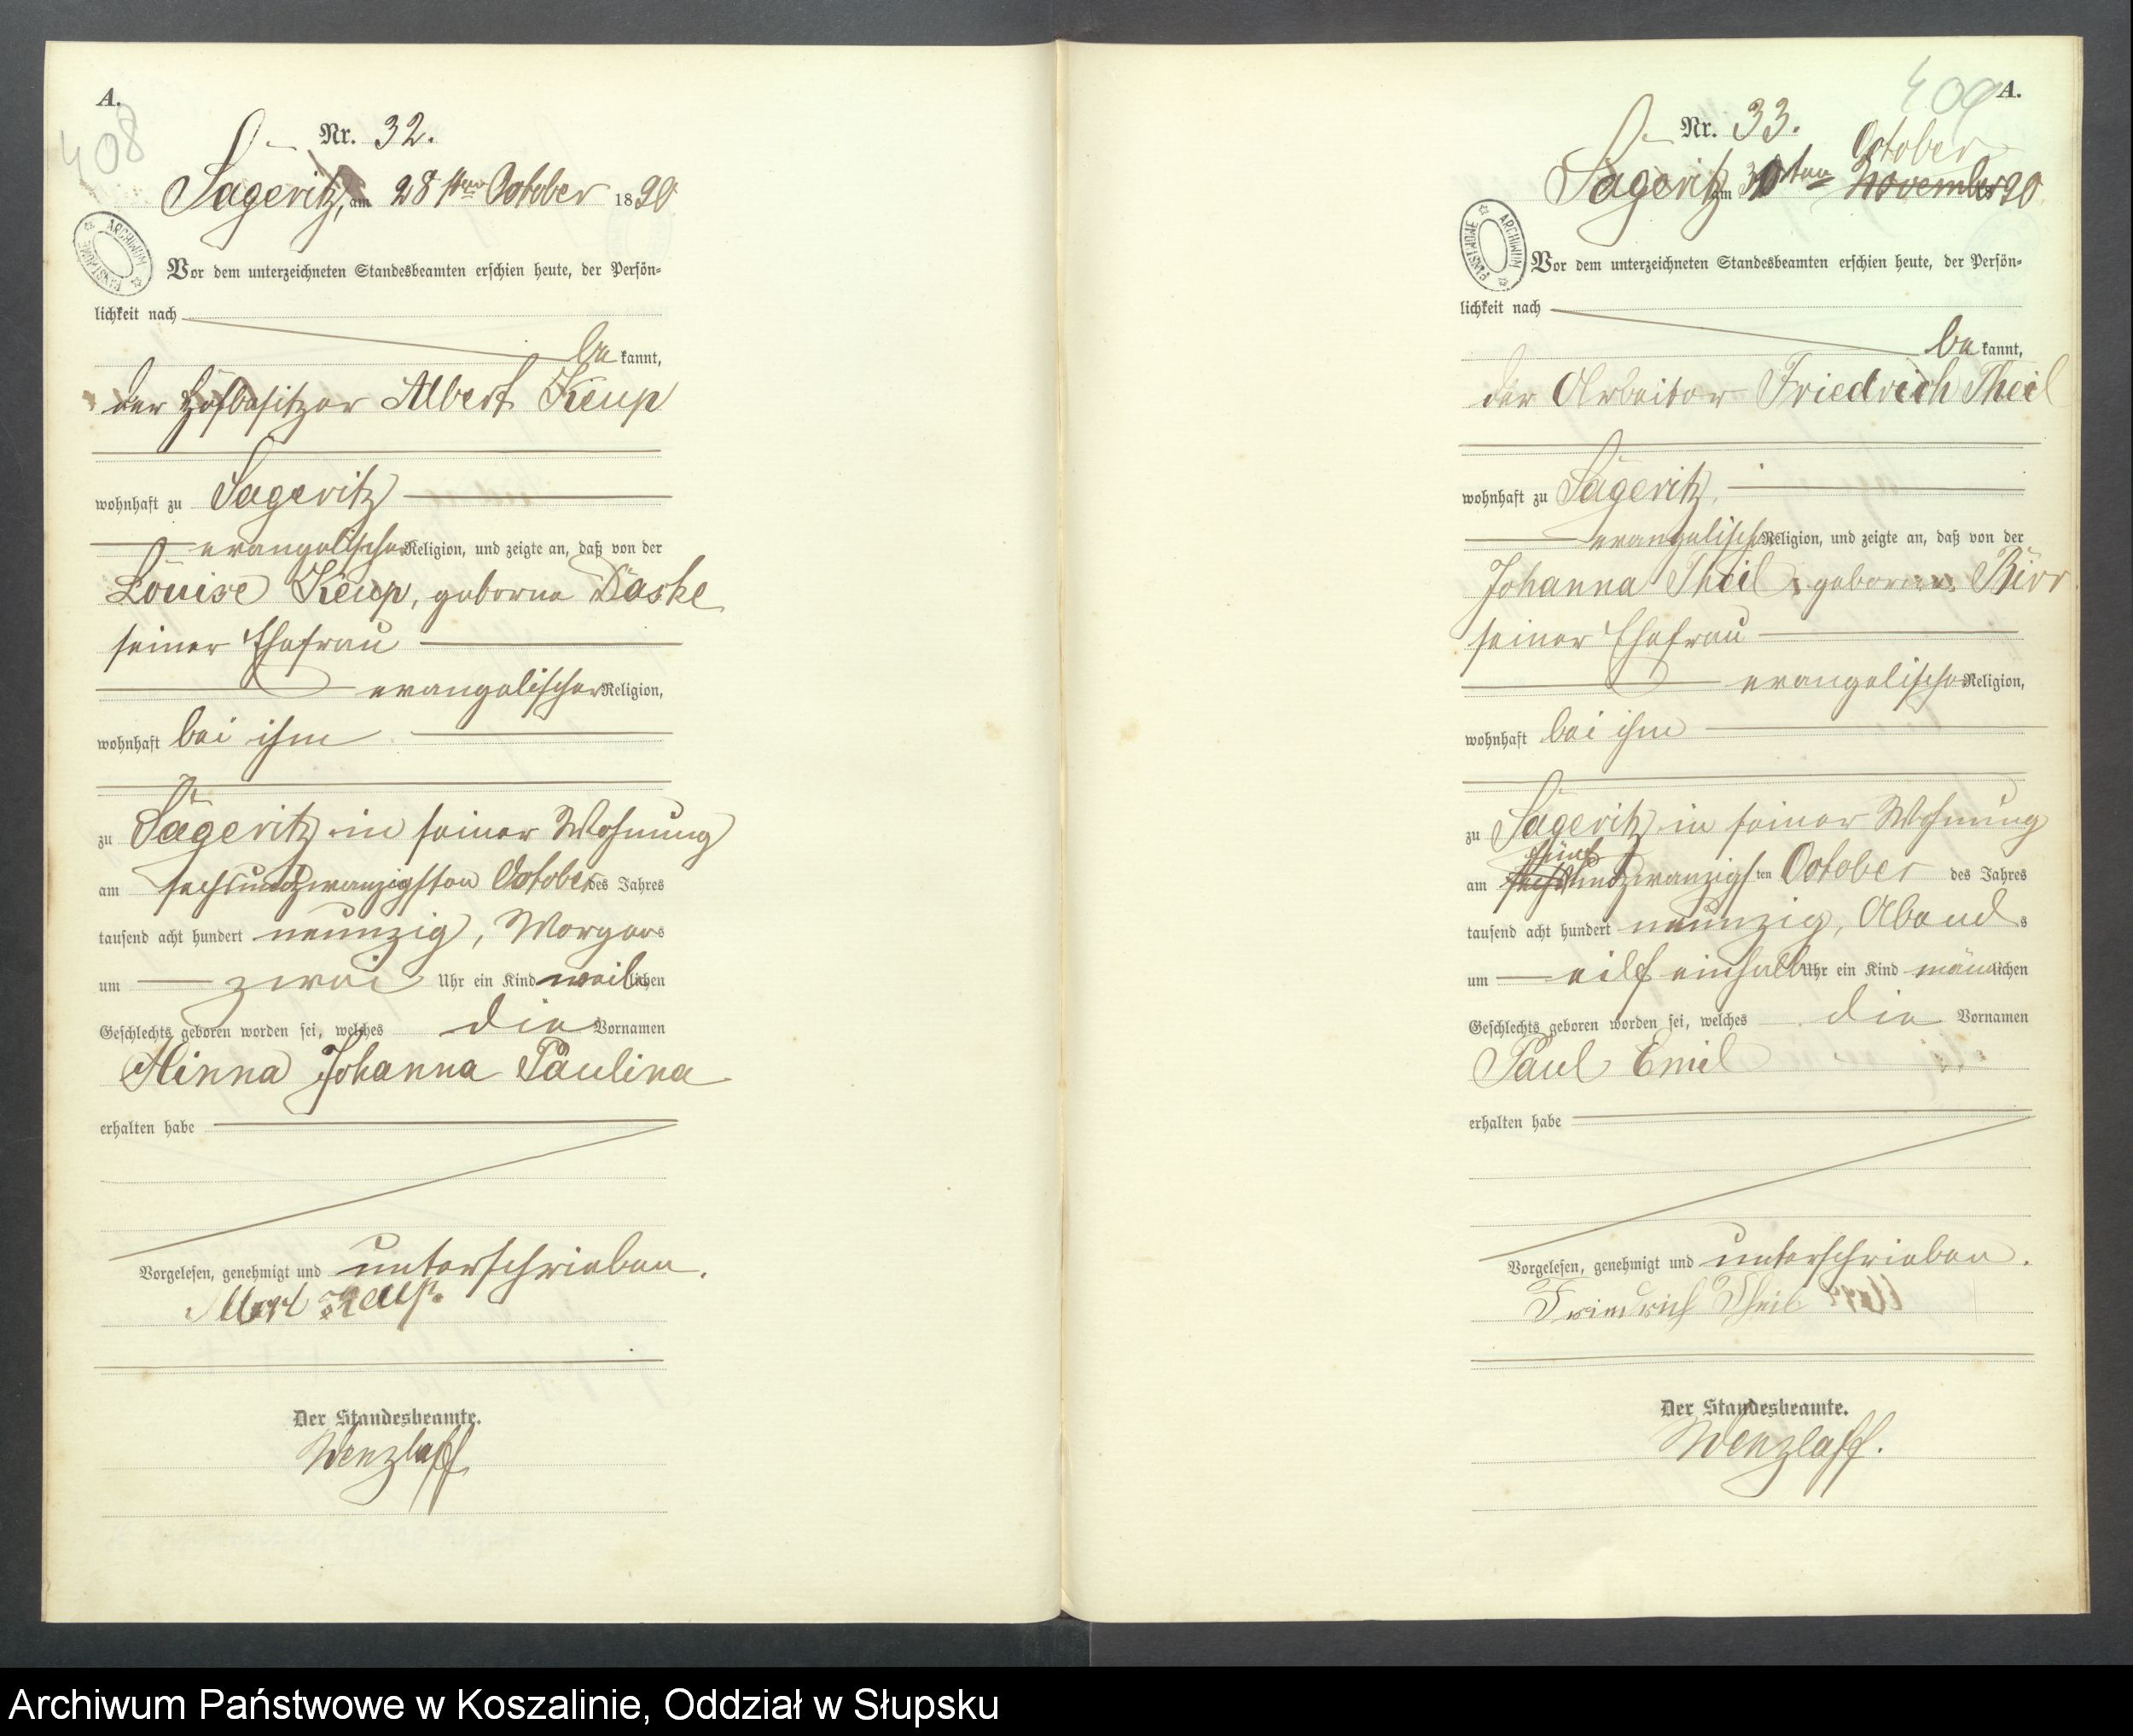 A.
408
Nr. 32.
Sageritz, am 28ten October 1890
ARCHIWUM PAŃSTWOWE
Vor dem unterzeichneten Standesbeamten erschien heute, der Persön-
lichkeit nach
be kannt,
der Hofbesitzer Albert Keup
wohnhaft zu Sageritz
evangelischer Religion, und zeigte an, daß von der
Louise Keup, geborne Daske
seiner Ehefrau
evangelischer Religion,
wohnhaft bei ihm
zu Sageritz in seiner Wohnung
am sechsundzwanzigsten October des Jahres
tausend acht hundert neunzig, Morgens
um zwei Uhr ein Kind weiblichen
Geschlechts geboren worden sei, welches die Vornamen
Minna Johanna Paulina
erhalten habe
Vorgelesen, genehmigt und unterschrieben.
Albert Keup.
Der Standesbeamte.
Wenzlaff
A.
409
Nr. 33.
October
Sageritz am ten November 90
ARCHIWUM PAŃSTWOWE
Vor dem unterzeichneten Standesbeamten erschien heute, der Persön-
lichkeit nach
be kannt,
der Arbeiter Friedrich Theil
wohnhaft zu Sageritz,
evangelischer Religion, und zeigte an, daß von der
Johanna Theil geborenen Birr
seiner Ehefrau
evangelischer Religion,
wohnhaft bei ihm
zu Sageritz in seiner Wohnung
fünf
am sechsundzwanzigsten October des Jahres
tausend acht hundert neunzig, Abends
um eilf einhalb Uhr ein Kind männlichen
Geschlechts geboren worden sei, welches die Vornamen
Paul Emil
erhalten habe
Vorgelesen, genehmigt und unterschrieben.
Friedrich Theil
Der Standesbeamte.
Wenzlaff.
Archiwum Państwowe w Koszalinie, Oddział w Słupsku